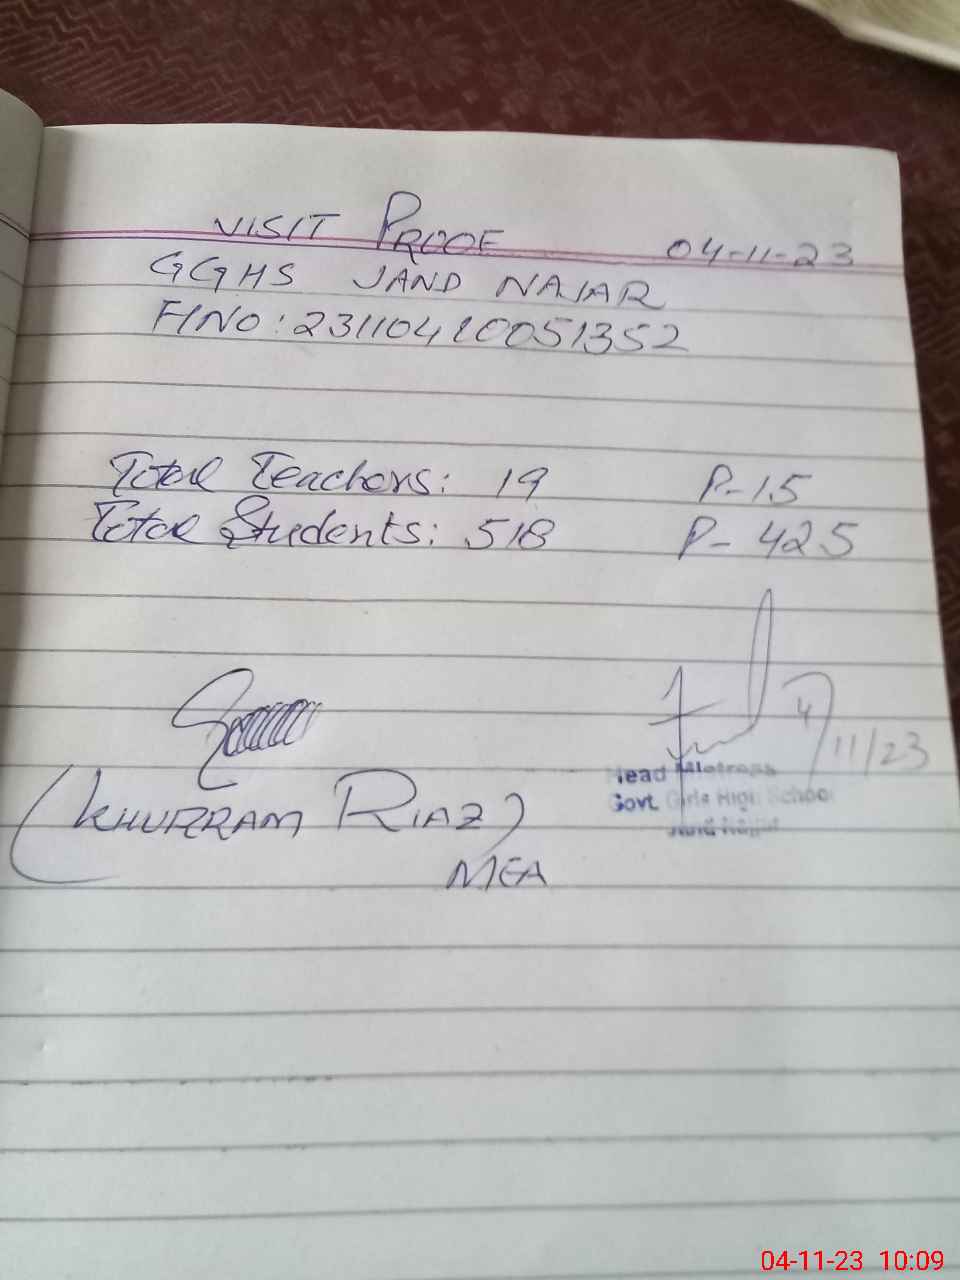 VISIT PROOF 04-11-23
GGHS JAND NAJAR
FINO: 23110410051352
Total Teachers: 19 P-15
Total Students: 518 P-425
4/11/23
Head Mistress
Govt. Girls High School
Jand Najjar
(KHURRAM RIAZ)
MEA
04-11-23 10:09